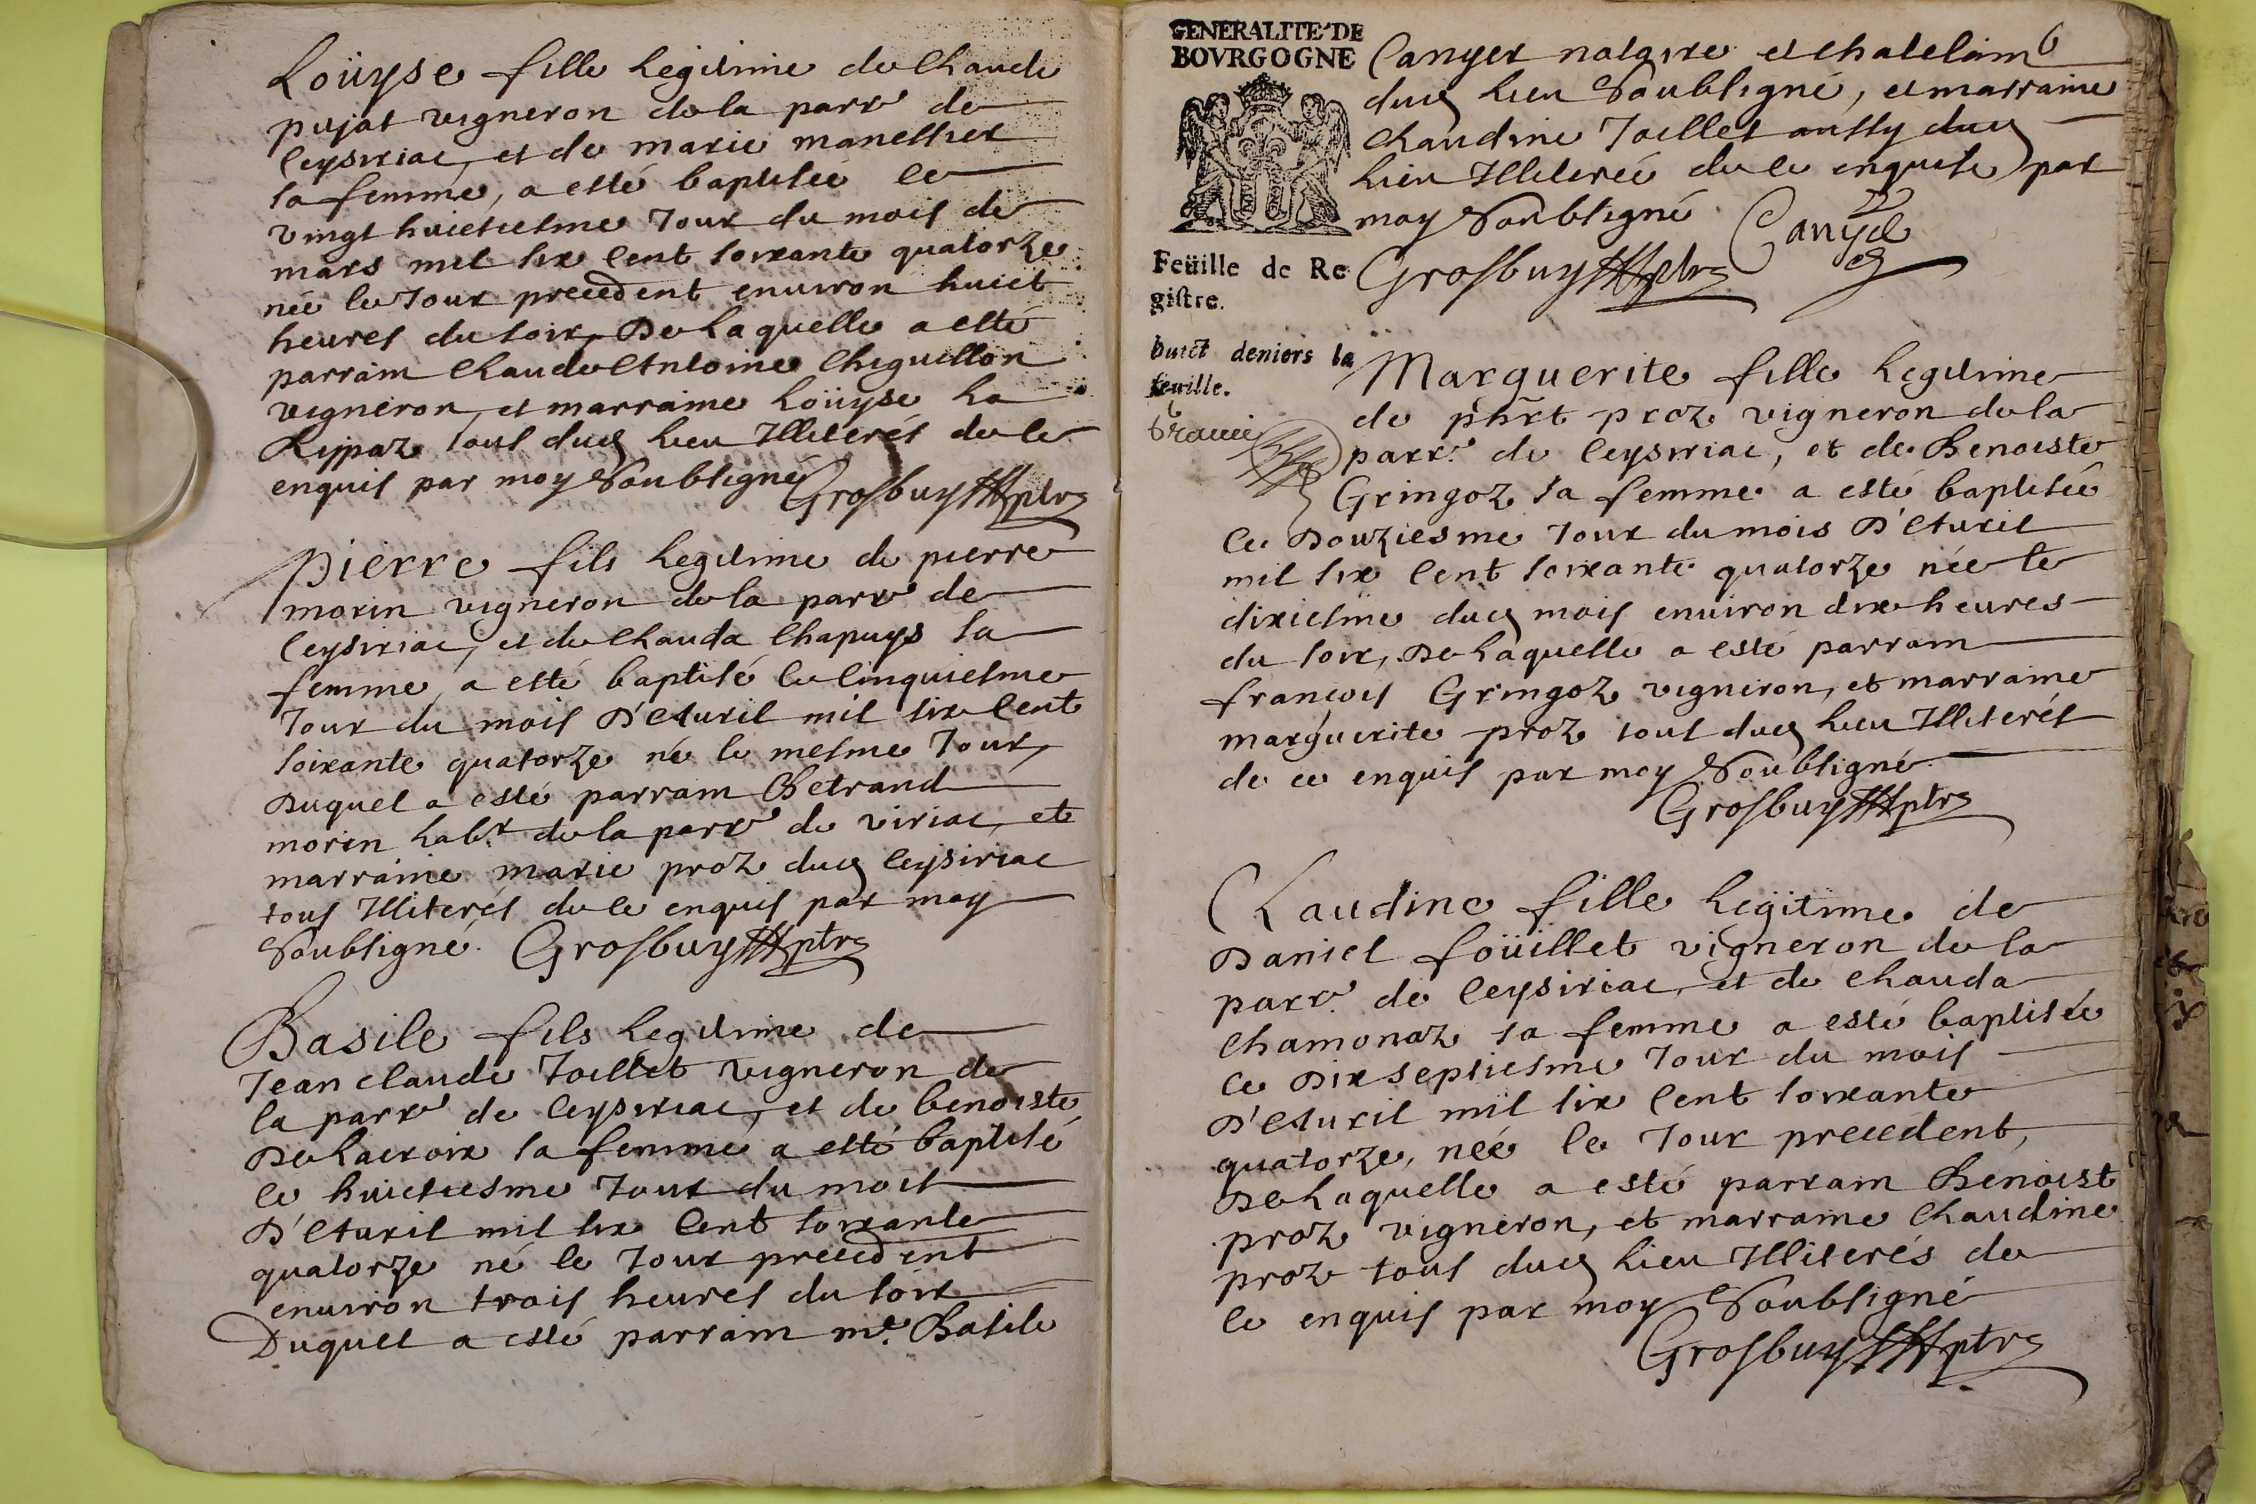 Loüyse fille legitime de Claude
pujat vigneron de la parr^e de
Ceysiriac, et de marie manessier
sa femme, a esté baptisée le
vingt huictiesme Jour du mois de
mars mil six Cent soixante quatorze
née le Jour precedent enuiron huict
heures du soir, De Laquelle a esté
parrain Claude Antoine Chiquillon
vigneron, et marraine Loüyse La
Rippaz tous dud lieu Illiterés de ce
enquis par moy Soubsigné
Grosbuy ptre
Pierre fils Legitime de pierre
morin vigneron de la parr^e de
Ceysiriac, et de Clauda Chapuys sa
femme, a esté baptisé le Cinquiesme
Jour du mois D'Auril mil six Cent
soixante quatorze né le mesme Jour,
Duquel a esté parrain Betrand
morin hab^t de la parr^e de viriac, et
marraine marie proz dud Ceysiriac
tous Illiterés de ce enquis par moy
Soubsigné. Grosbuy ptre
Basile fils Legitime de
Jean claude Joillet vigneron de
la parr^e de Ceysiriac, et de benoiste
DeLacroix sa femme a esté baptisé
le huictiesme Jour du mois
D'Auril mil six Cent soixante
quatorze né le Jour precedent
enuiron trois heures du soir
Duquel a esté parrain m^e. Basile
6
GENERALITE DE
BOVRGOGNE
Canyer notaire et chatelain
dud lieu Soubsigné, et marraine
Claudine Joillet aussy dud
lieu Illiterée de ce enquise par
moy Soubsigné
Canyer
Grosbuy ptre
Feüille de Re
gistre.
huict deniers la
feuille.
Marguerite fille Legitime
de phrt proz vigneron de la
parr^e. de Ceysiriac, et de Benoiste
Gringoz sa femme a esté baptisée
le Douziesme Jour du mois D'Auril
mil six Cent soixante quatorze née le
dixiesme dud mois enuiron dix heures
du soir, De Laquelle a esté parrain
françois Gringoz vigneron, et marraine
marguerite proz tous dud lieu Illiterés
de ce enquis par moy Soubsigné
Grosbuy ptre
Claudine fille Legitime de
Daniel foüillet vigneron de la
parr^e. de Ceysiriac, et de Clauda
Chamonaz sa femme a esté baptisée
le Dix septiesme Jour du mois
D'Auril mil six Cent soixante
quatorze, née le Jour precedent,
De Laquelle a esté parrain Benoist
proz vigneron, et marraine Claudine
proz tous dud lieu Illiterés de
ce enquis par moy Soubsigné
Grosbuy ptre